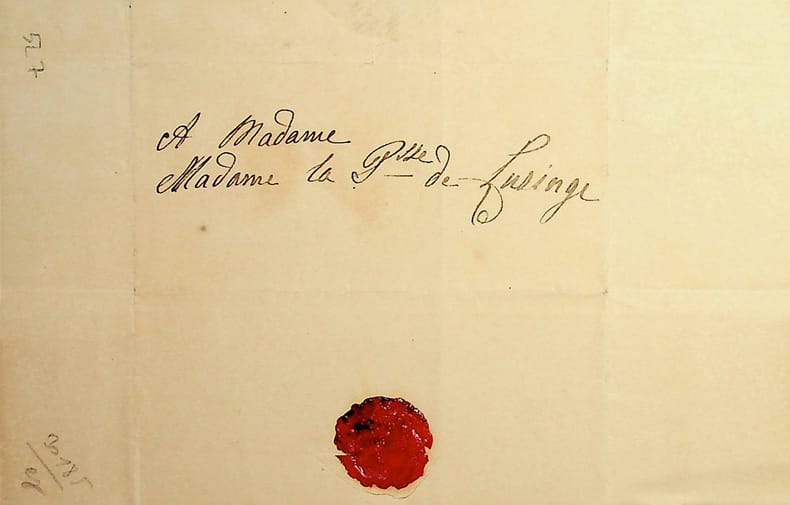 A Madame
Madame la Psse de Lusinge
527